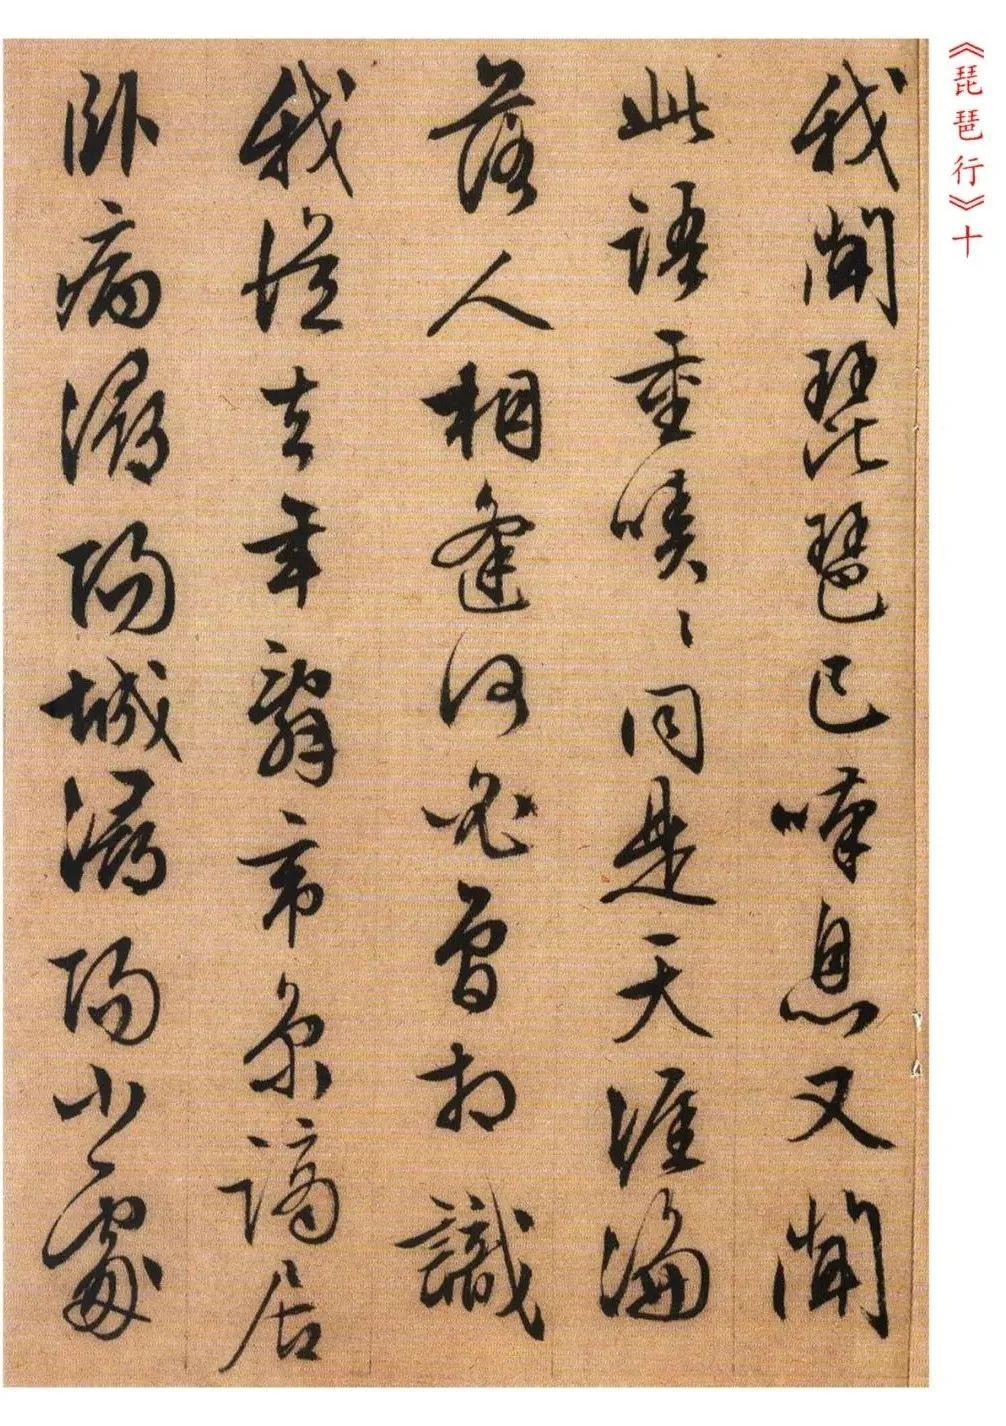 《琵琶行》十
我聞琵琶已嘆息又聞
此語重唧〻同是天涯淪
落人相逢何必曾相識
我從去年辭帝京謫居
卧病潯陽城潯陽小處